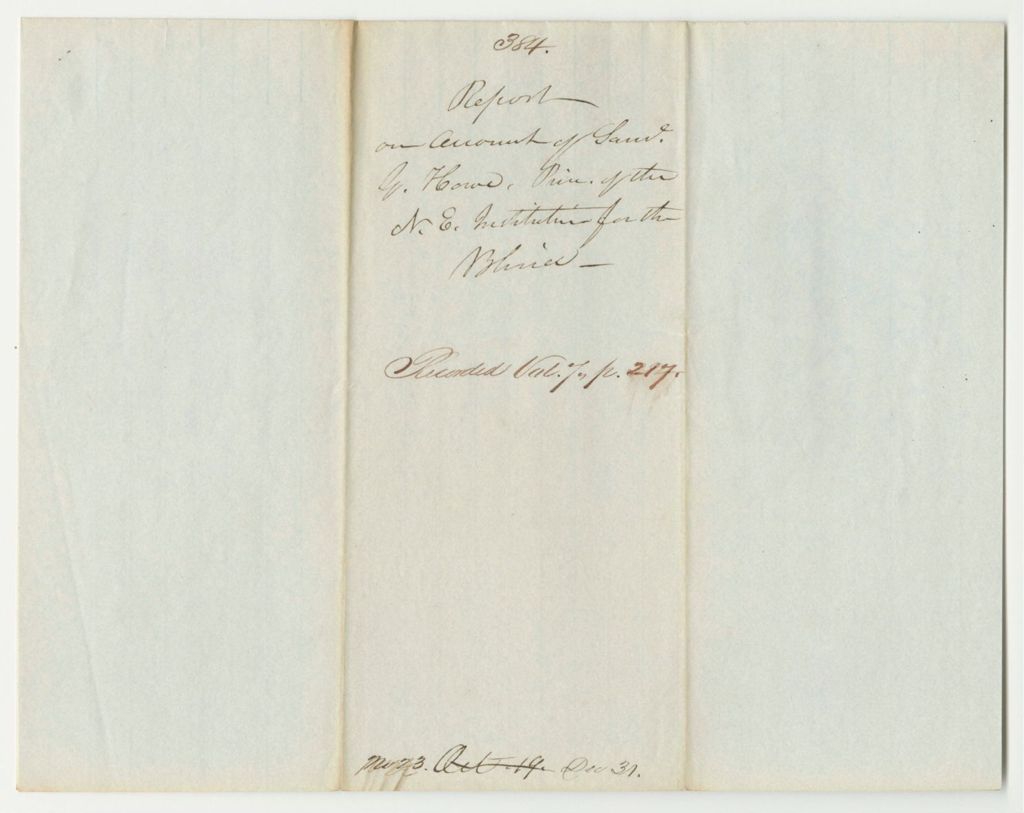 384.
Report
on Account of Saml.
G. Howe, Prin. of the
N. E. Institution for the
Blind—
Recorded Vol. 7, p. 217.
Oct 19. Dec 31.